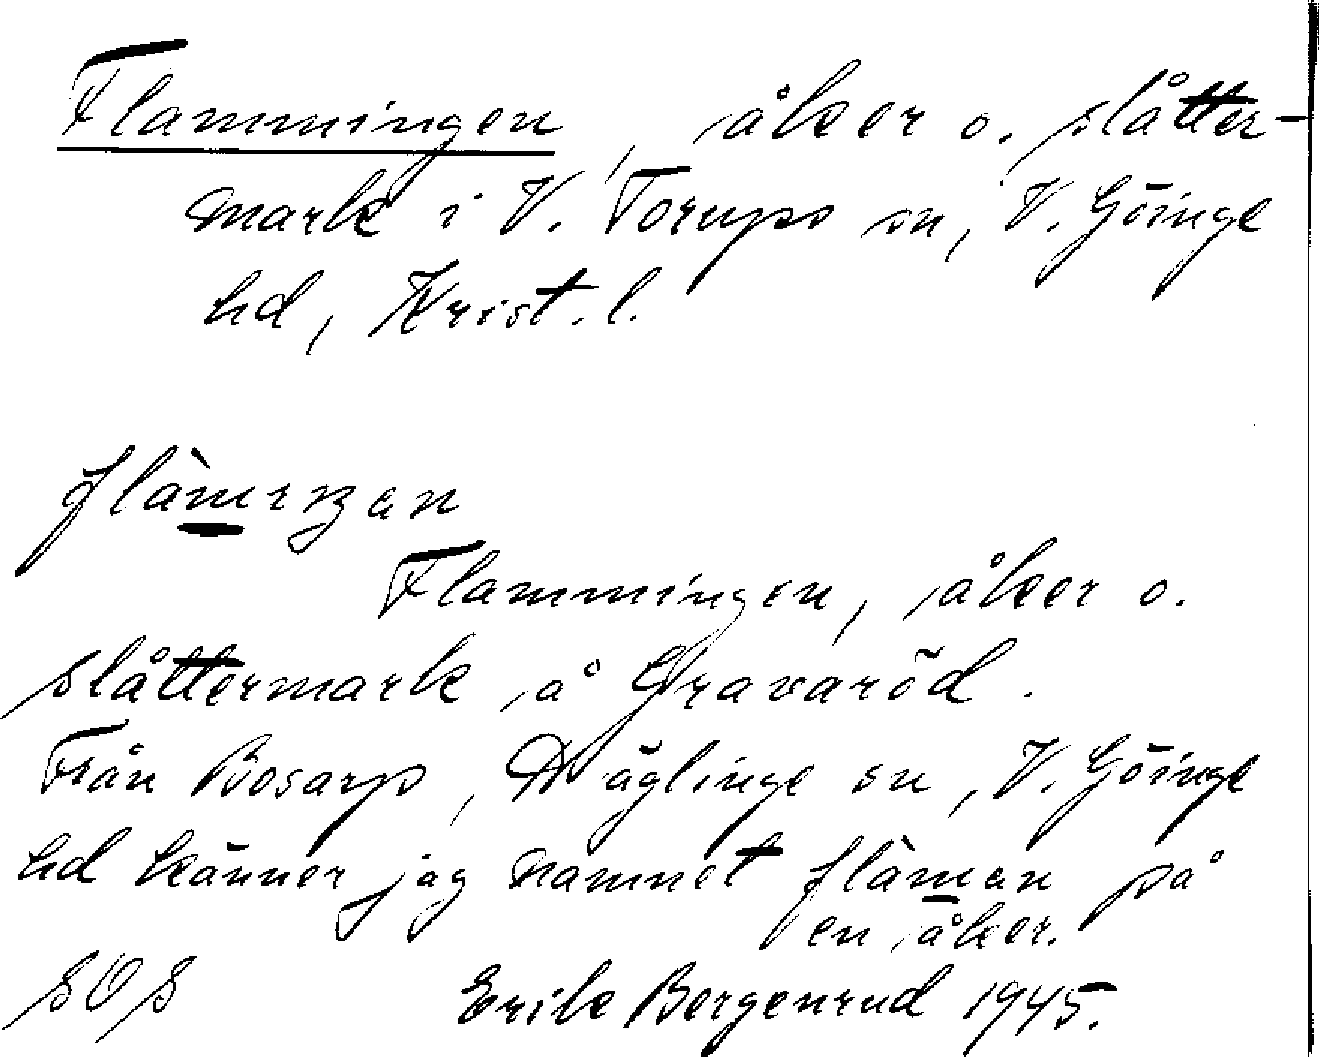 Flammingen, åker o. slåtter-
mark i V. Torups sn, V. Göinge
hd, Krist. l.
flàmıŋan
Flammingen, åker o.
slåttermark å Gravaröd.
Från Bosarp, Däglinge sn, V. Göinge
hd känner jag namnet flàman på
en åker.
SOS Erik Bergenrud 1945.